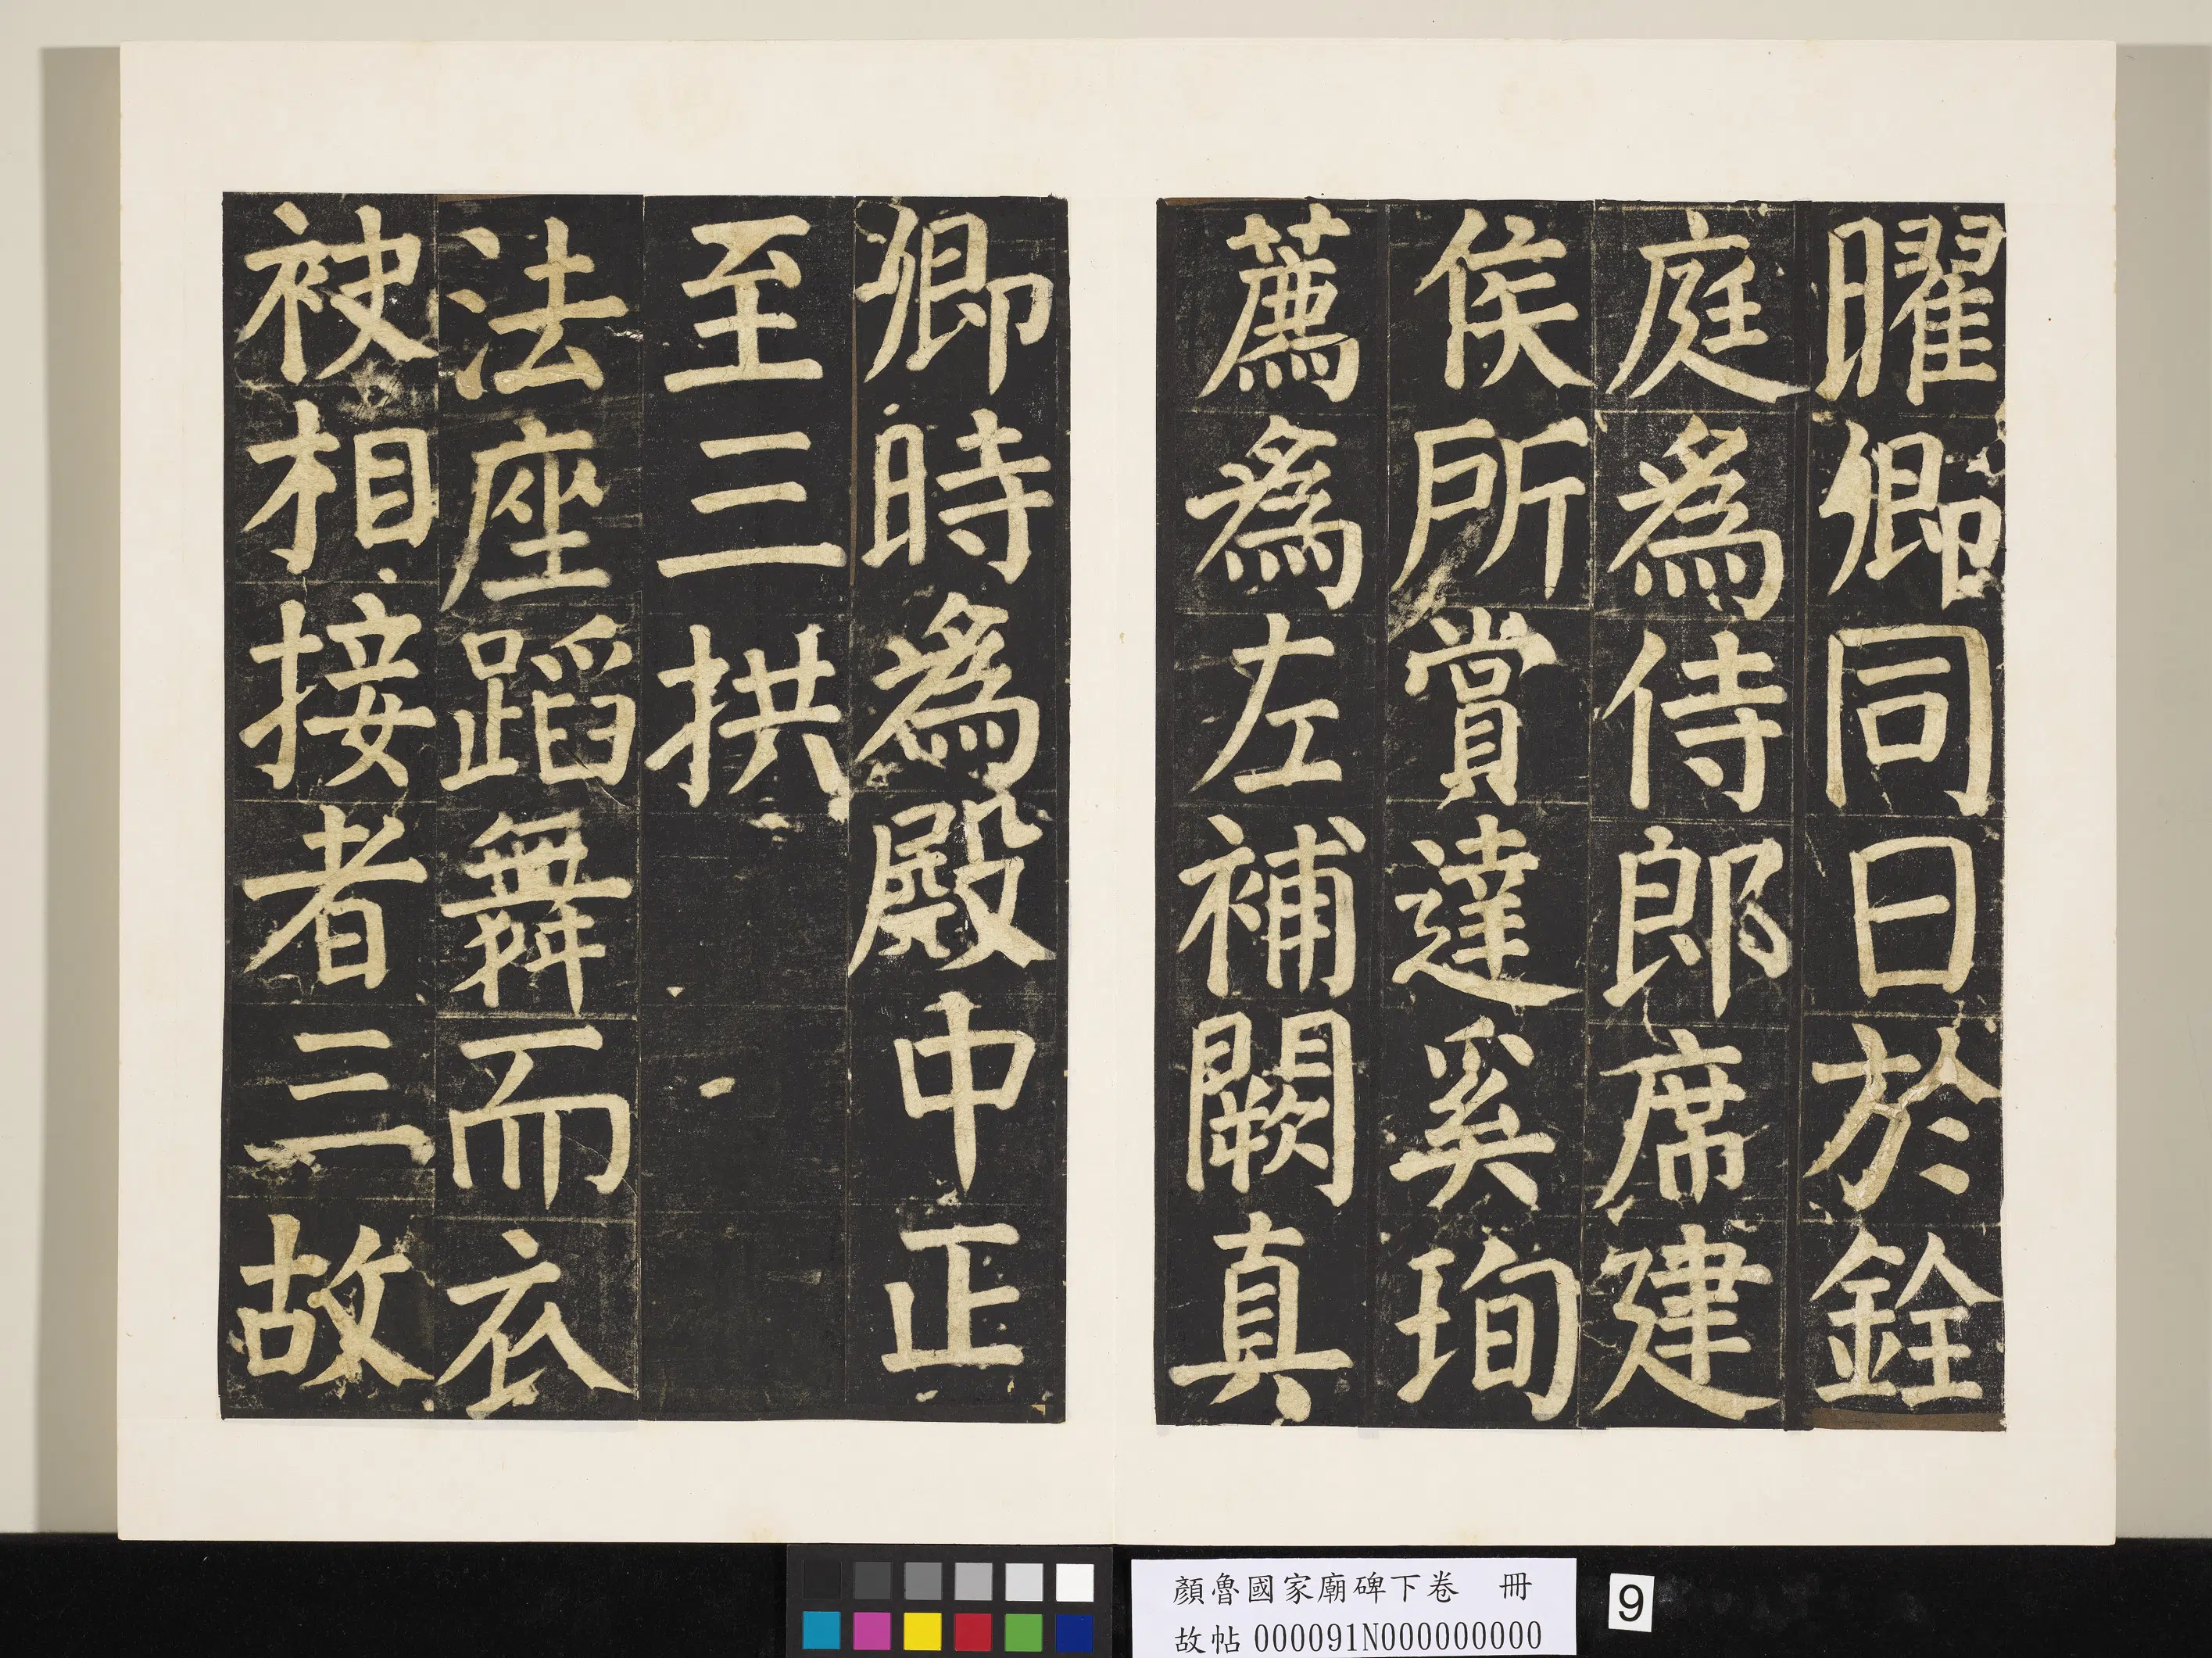 曜卿同日於銓
庭為侍郎席建
侯所賞達奚珣
薦為左補闕真
卿時為殿中正
至三拱
法座蹈舞而衣
袂相接者三故
顏魯國家廟碑下卷 冊
故帖000091N000000000
9